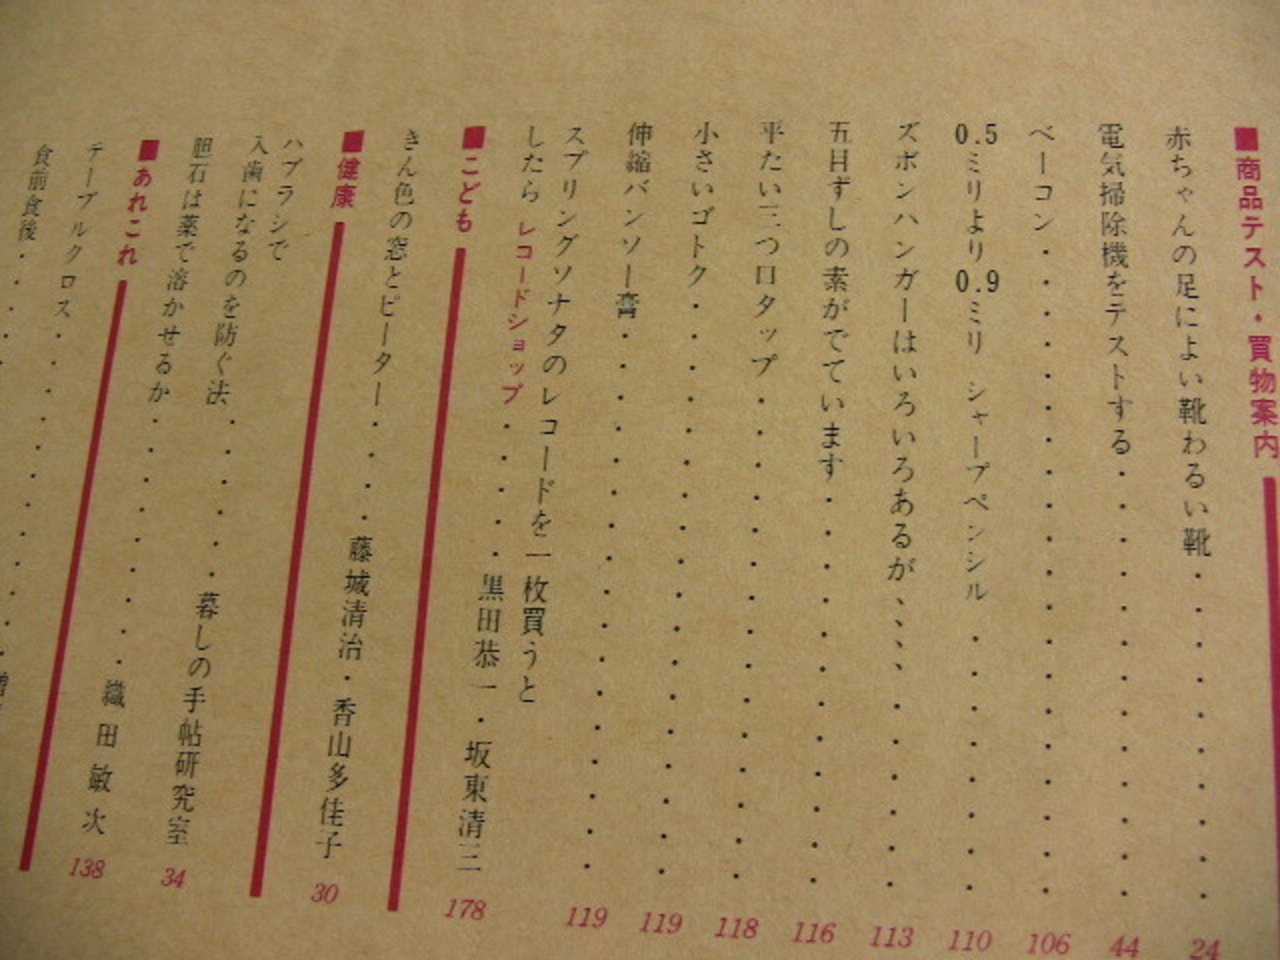 ■商品テスト・買物案内
赤ちゃんの足によい靴わるい靴・・・・・・・24
電気掃除機をテストする・・・・・・・・44
ベーコン・・・・・・・・・・・・106
0.5ミリより0.9ミリ シャープペンシル・・・・・110
ズボンハンガーはいろいろあるが、、、、・・・・113
五目ずしの素がでています・・・・・・・116
平たい三つ口タップ・・・・・・・・118
小さいゴトク・・・・・・・・・・119
伸縮バンソー膏・・・・・・・・・119
スプリングソナタのレコードを一枚買うと
したら レコードショップ・・・・黒田恭一・坂東清三 178
■こども
きん色の窓とピーター・・・藤城清治・香山多佳子 30
■健康
ハブラシで
入歯になるのを防ぐ法・・・・暮しの手帖研究室 34
胆石は薬で溶かせるか・・・・・織田敏次 138
■あれこれ
テーブルクロス・・・・・・
食前食後・・・・